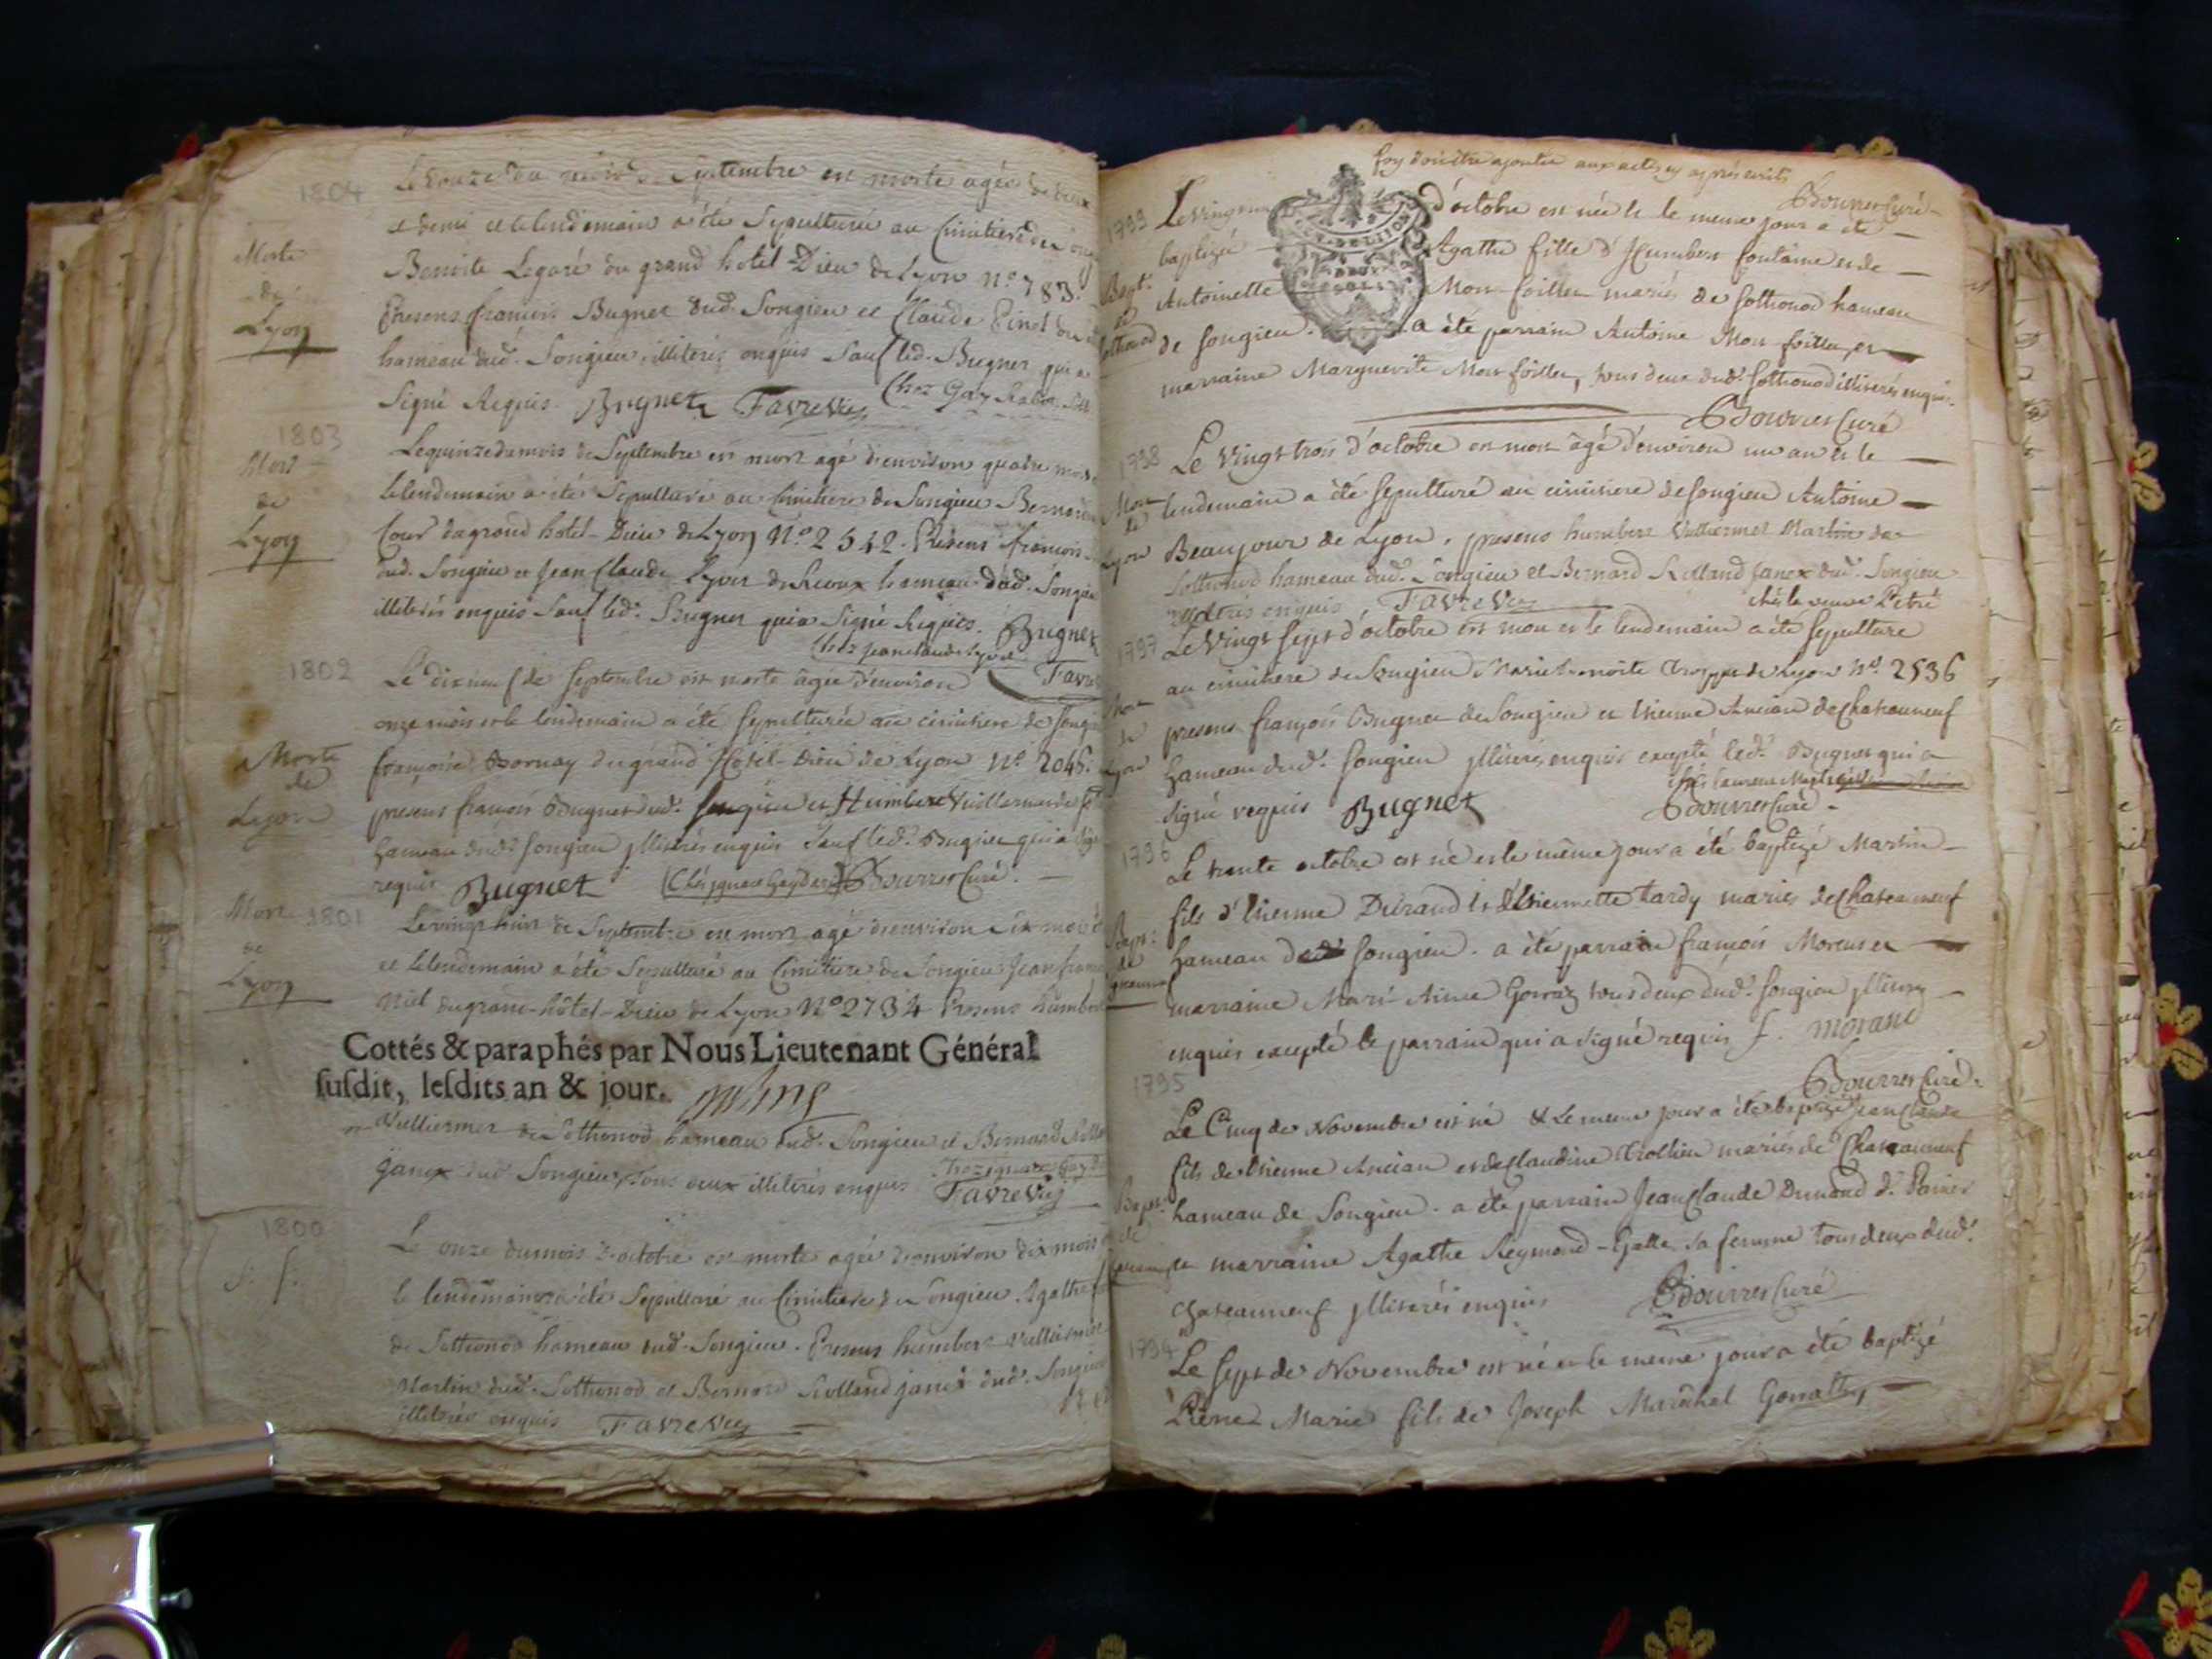 1804
Le douze du mois de Septembre est morte agée de deux
et demi et le lendemain a été Sepulturée au Cimitiere de
Morte de Lyon
Benoite Legaré du grand hotel-Dieu de Lyon n.º 783.
Presens francois Bugnet dud. Songieu et Claude Pinet du
hameau dud. Songieu, illiterés enquis Sauf led. Bugnet qui a
Signé Requis. Bugnet Favre Vic
Chez Gay
1803
Mort de Lyon
Le quinze du mois de Septembre est mort agé d'environ quatre mois
le lendemain a été Sepulturé au Cimitiere de Songieu Bernard
Cour du grand hotel-Dieu de Lyon N.º 2542. Presens francois
dud. Songieu et Jean Claude Lyvet de hameau dud. Songieu
illiterés enquis Sauf led. Bugnet qui a Signé Requis. Bugnet
Chez Jean Claude Lyvet
Favre
1802
Le dix neuf de Septembre est morte agée d'environ
onze mois et le lendemain a été Sepulturée au cimitiere de Songieu
Morte de Lyon
françoise Bornay du grand Hotel-Dieu de Lyon Nº 2046.
presens françois Bugnet dud. Songieu et Humbert Vuillermet de
hameau dud. Songieu illiterés enquis Sauf led. Bugnet qui a signé
requis Bugnet Bourret Curé.
1801
Mort de Lyon
Le vingt huit de Septembre est mort agé d'environ six mois
et le lendemain a été Sepulturé au Cimitiere de Songieu Jean francois
Niel du grand-hôtel-Dieu de Lyon Nº 2734 Presens humbert
Cottés & paraphés par Nous Lieutenant Général
susdit, lesdits an & jour.
Vulliermet de Sothonod hameau dud. Songieu et Bernard Rolland
Janex dud. Songieu, tous deux illiterés enquis
Favre Vic
1800
S. f.
Le onze du mois d'octobre est morte agée d'environ dix mois
le lendemain a été Sepulturée au Cimitiere de Songieu Agathe
de Sothonod hameau dud. Songieu. Presens humbert Vulliermet
Martin dud. Sothonod et Bernard Rolland janex dud. Songieu
illiterés enquis Favre Vic
foy d'ajoutée aux actes cy après ecrits
Bourret Curé
1799
Le vingt d'octobre est née et le meme jour a été
baptizée Agathe fille d'Humbert fontaine et de
Bapt. de Sothonod
Antoinette Monfoillet mariés de Sothonod hameau
de Songieu. a été parrain Antoine Monfoillet, et
marraine Marguerite Monfoillet, tous deux dud. Sothonod illiterés enquis.
Bourret Curé
1798
Le Vingt trois d'octobre est mort âgé d'environ un an et le
Mort de Lyon
lendemain a été Sepulturé au cimitiere de Songieu Antoine
Beaujour de Lyon, presens humbert Vulliermet Martin de
Sothonod hameau dud. Songieu et Bernard Rolland Janex dud. Songieu
illiterés enquis, Favre Vic
chés la veuve
1797
Le Vingt Sept d'octobre est mort et le lendemain a été Sepulturé
au cimitiere de Songieu Marie Benoite de Lyon Nº 2536
Mort de Lyon
presens françois Bugnet de Songieu et Etienne Ancian de Chateauneuf
hameau dud. Songieu illiterés enquis excepté led. Bugnet qui a
signé requis Bugnet
Bourret Curé
1796
Le trente octobre est né et le même jour a été baptizé Martin
fils d'Etienne Durand et d'Etiennette tardy mariés de Chateauneuf
Bapt. de
hameau de Songieu. a été parrain françois Morand et
marraine Marie Aimée Gorraz tous deux dud. Songieu illiterés
enquis excepté le parrain qui a signé requis f. morand
Bourret Curé
1795
Le Cinq de Novembre est né & Le meme jour a été baptizé Jean Claude
fils de Etienne Ancian et de Claudine Crollieu mariés de Chateauneuf
Bapt. de
hameau de Songieu. a été parrain Jean Claude Dunand d.
et marraine Agathe Reymond-Galle sa femme tous deux dud.
Chateauneuf illiterés enquis Bourret Curé
1794
Le Sept de Novembre est né et le meme jour a été baptizé
Pierre Marie fils de Joseph Maréchal